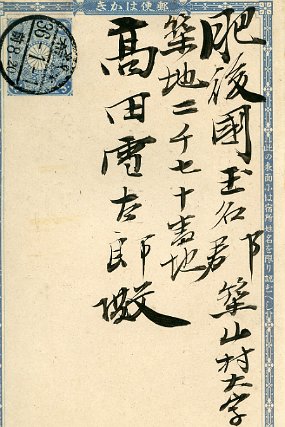 郵便はかき
肥後國玉名郡築山村大字
築地二千七十壱番地
高田
太郎殿
此の表面には宿所姓名を限り認むへし